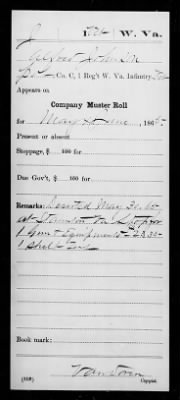 J 1 W. Va.
Alfred Johnson
Co. C, 1 Reg't W. Va. Infantry
Appears on
Company Muster Roll
for May & June, 1865.
Present or absent
Stoppage, $ 100 for
Due Gov't, $ 100 for
Remarks: Deserted May 30, 65
at Staunton Va. Stop for
1 Gun & Equipments
1 Shelt Tent
Book mark:
Van Doren
(858) Copyist.